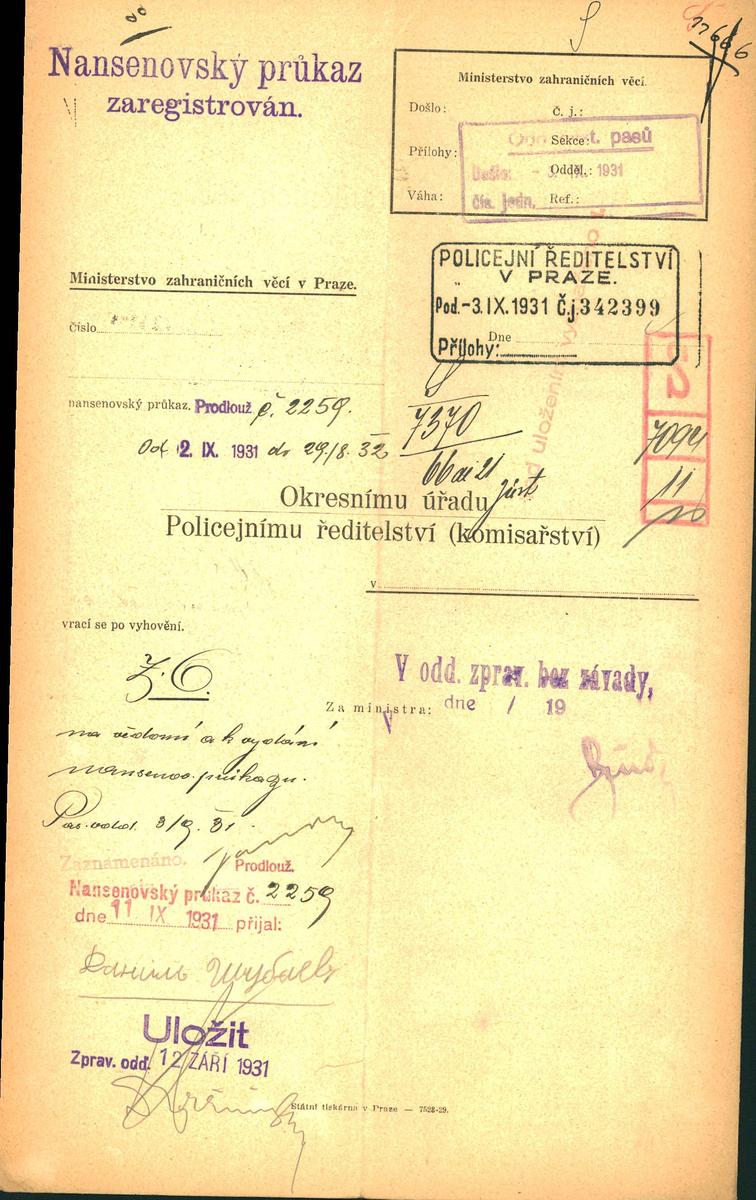 77666
Nansenovský průkaz
zaregistrován.
Ministerstvo zahraničních věcí.
Došlo:
Č. j.:
Sekce:
Přílohy:
Odděl.:
Váha:
Ref.:
pasů
Došlo: - 3. IX. 1931
čís. jedn.
POLICEJNÍ ŘEDITELSTVÍ
V PRAZE.
Pod. -3. IX. 1931 Č.j. 342399
Dne
Přílohy:
Ministerstvo zahraničních věcí v Praze.
Číslo
nansenovský průkaz. Prodlouž č. 2259.
Od 2. IX. 1931 do 29./8. 32
7370
7094
11
Okresnímu úřadu
Policejnímu ředitelství (komisařství)
v
vrací se po vyhovění.
V odd. zprav. bez závady,
dne / 19
Za ministra:
na vědomí a k vydání
nansenov. průkazu.
Pas. odd. 3/9. 31.
Zaznamenáno.
Prodlouž.
Nansenovský průkaz č. 2259
dne 11 IX 1931 přijal:
Даниил Шубаев
Uložit
Zprav. odd. 12 ZÁŘÍ 1931
Státní tiskárna v Praze — 7528-29.